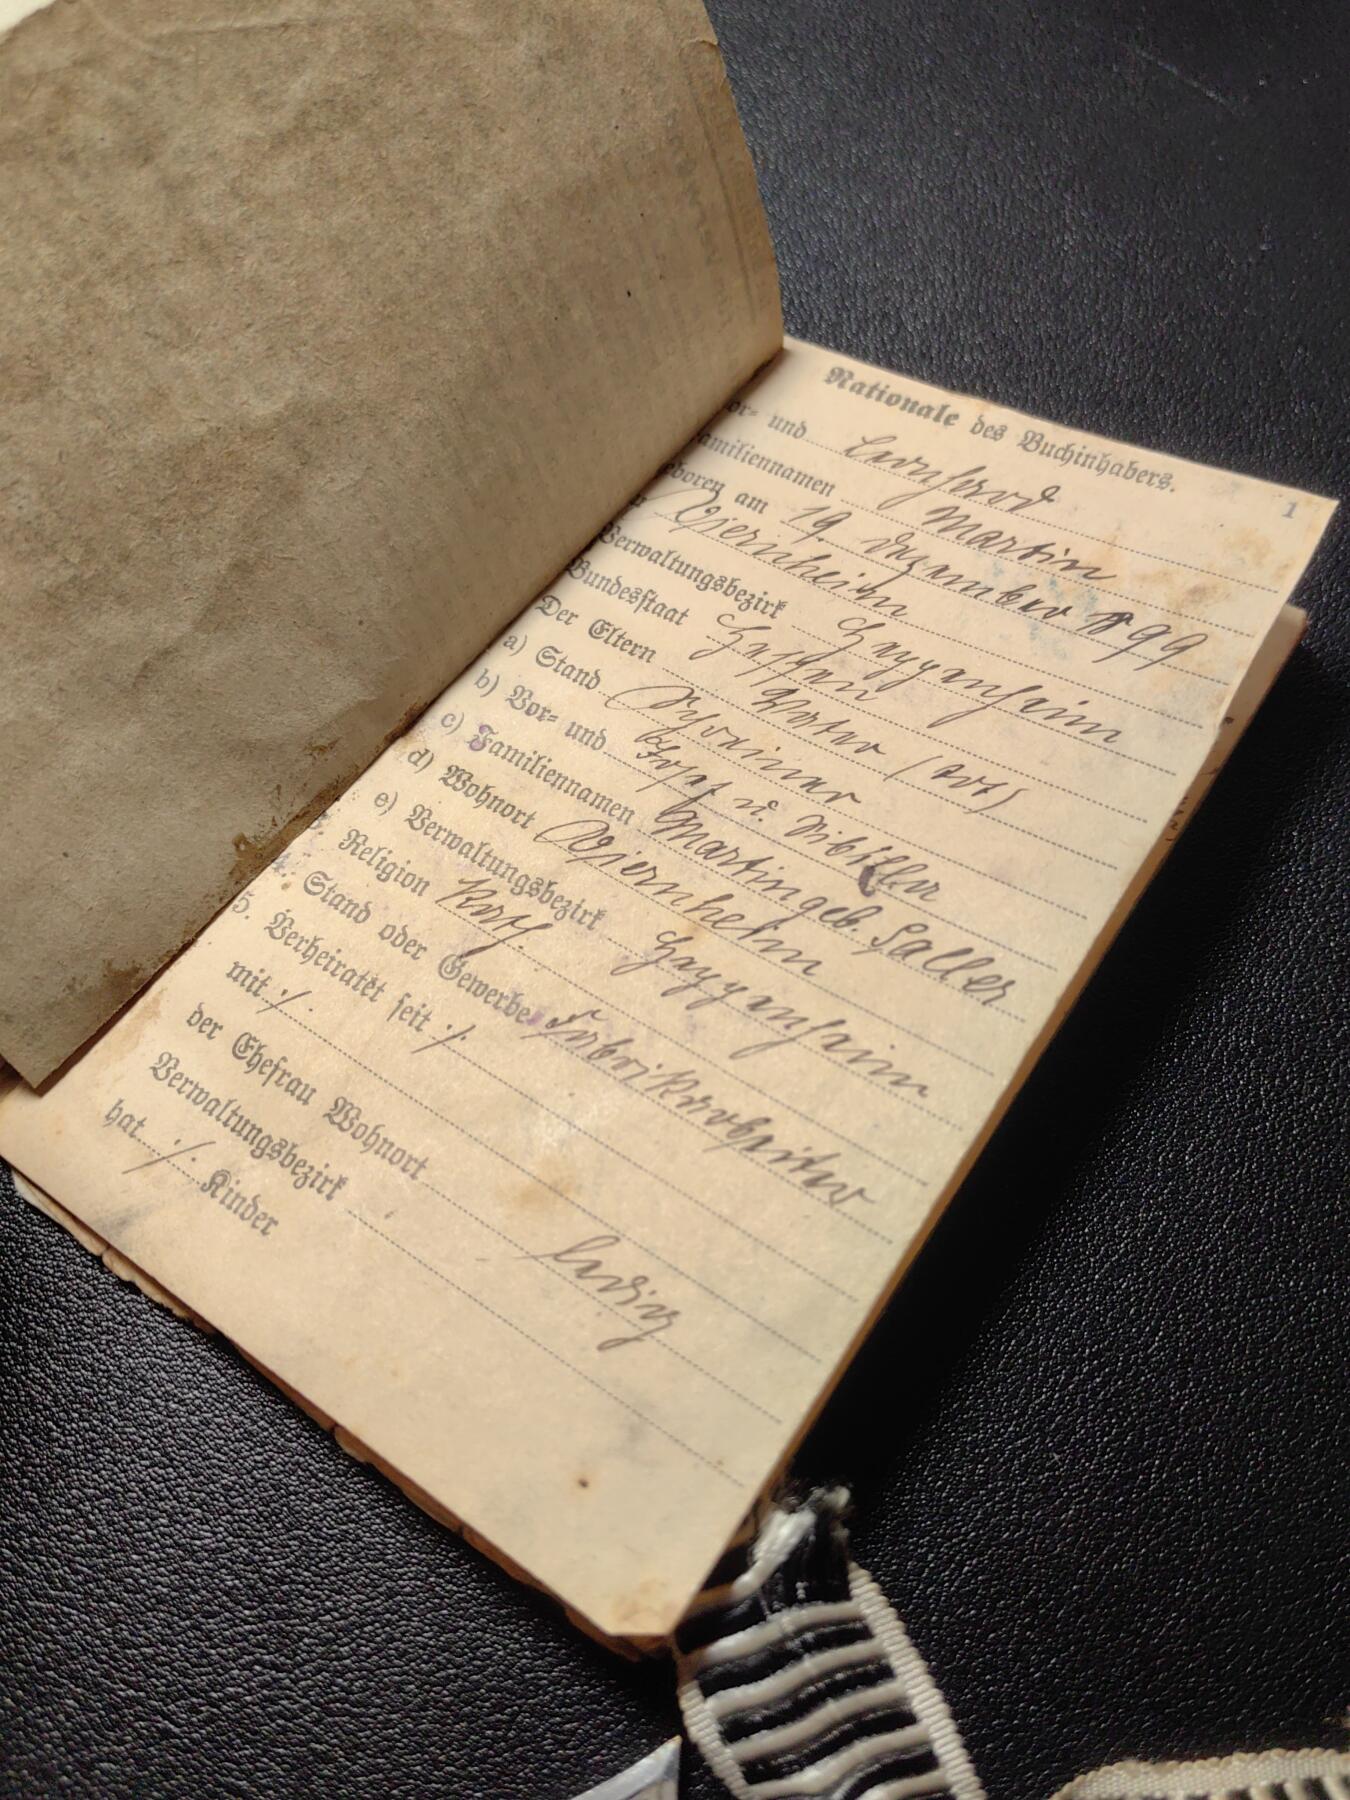 Nationale des Buchinhabers.
1
or= und
amiliennamen Martin
eboren am 19 Dezember 1899
Viernheim
Verwaltungsbezirk Heppenheim
Bundesstaat Hessen
Der Eltern Vater (tot)
a) Stand Schreiner
b) Vor= und Jost u. Sibilla
c) Familiennamen Martin geb. Saller
d) Wohnort Viernheim
e) Verwaltungsbezirk Heppenheim
3. Religion Kath.
4. Stand oder Gewerbe Fabrikarbeiter
5. Verheiratet seit ./.
mit ./.
der Ehefrau Wohnort
Verwaltungsbezirk ledig
hat ./. Kinder